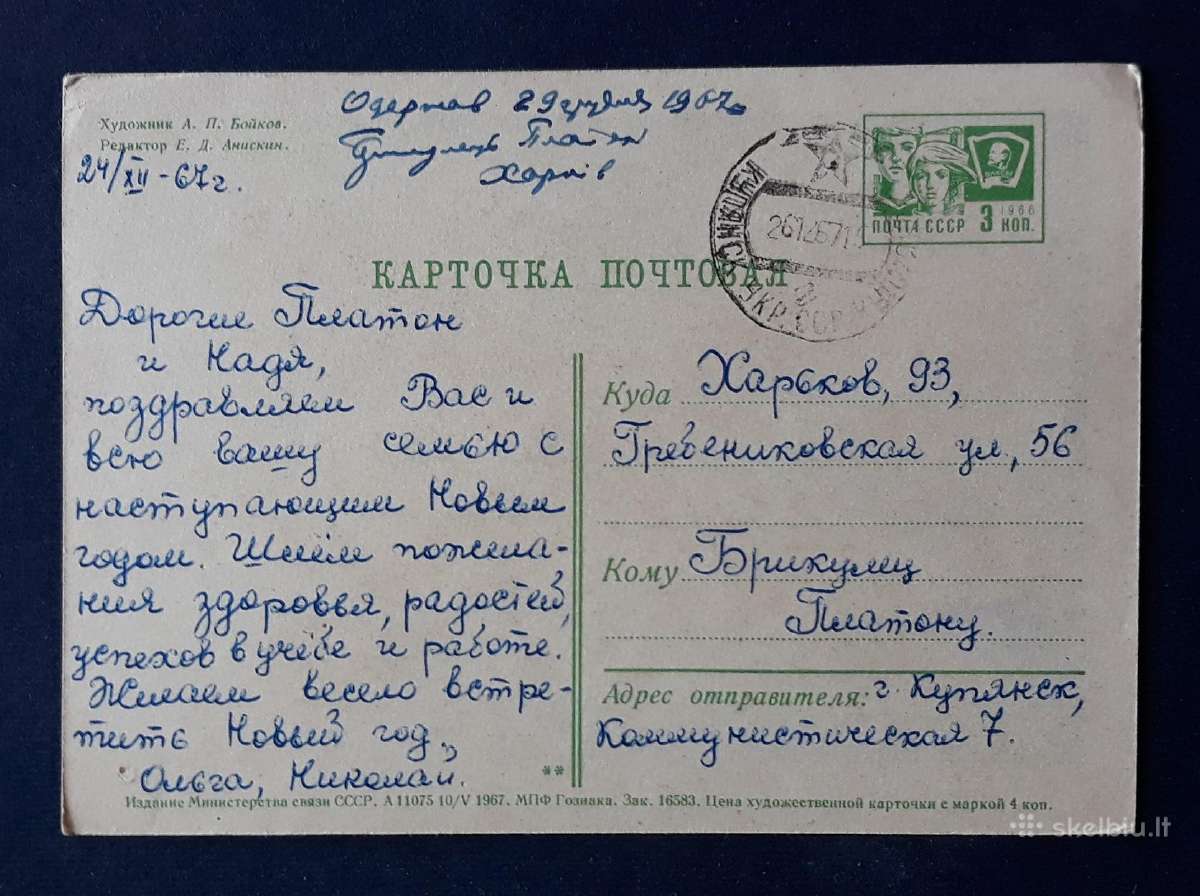 Художник А. П. Бойков.
Редактор Е. Д. Анискин.
24/XII-67 г.
Одержав 29 грудня 1967
Платон
Харків
ПОЧТА СССР
1966
3 КОП.
КУПЯНСК
УКР. ССР
КАРТОЧКА ПОЧТОВАЯ
Дорогие Платон
и Надя,
поздравляем Вас и
всю вашу семью с
наступающим Новым
годом. Шлём пожела-
ния здоровья, радостей,
успехов в учёбе и работе.
Желаем весело встре-
тить Новый год,
Ольга, Николай.
Куда Харьков, 93,
Гребениковская ул, 56
Кому
Платону.
Адрес отправителя: г. Купянск,
Коммунистическая 7.
**
Издание Министерства связи СССР. А 11075 10/V 1967. МПФ Гознака. Зак. 16583. Цена художественной карточки с маркой 4 коп.
skelbiu.lt